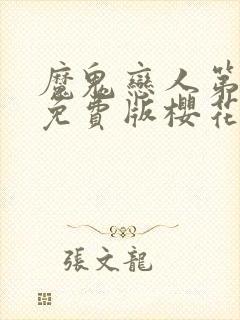 魔鬼戀人第
免費版櫻花
張文龍